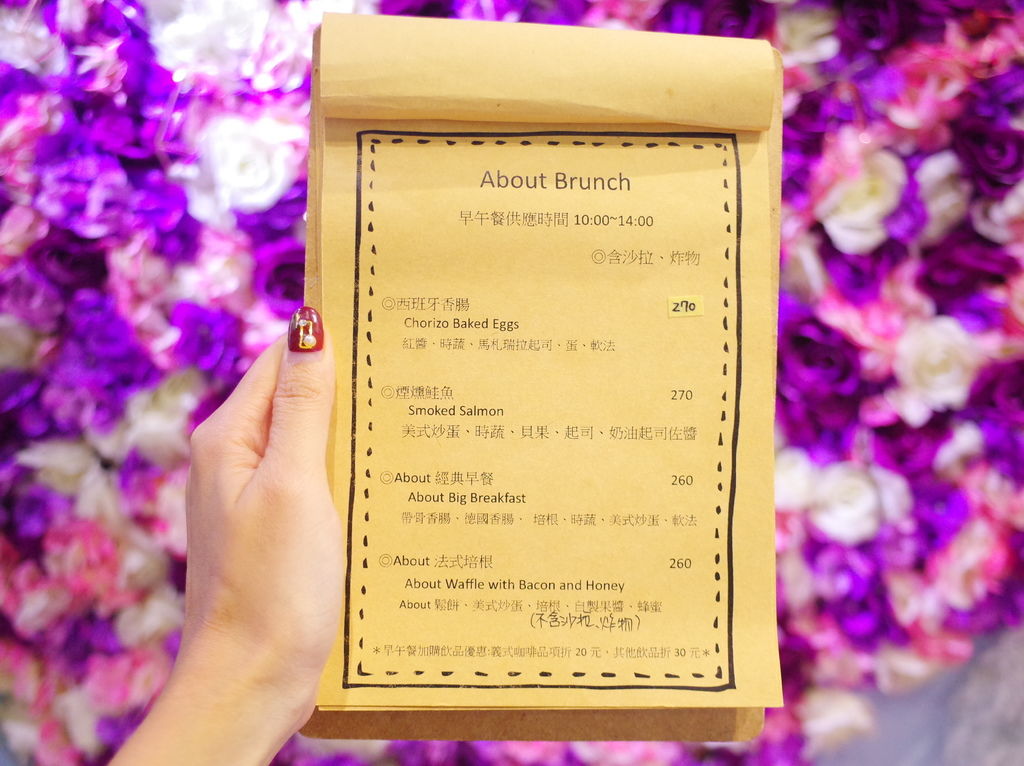 About Brunch
早午餐供應時間 10:00~14:00
◎含沙拉、炸物
◎西班牙香腸 270
Chorizo Baked Eggs
紅醬、時蔬、馬札瑞拉起司、蛋、軟法
◎煙燻鮭魚 270
Smoked Salmon
美式炒蛋、時蔬、貝果、起司、奶油起司佐醬
◎About 經典早餐 260
About Big Breakfast
帶骨香腸、德國香腸、 培根、時蔬、美式炒蛋、軟法
◎About 法式培根 260
About Waffle with Bacon and Honey
About 鬆餅、美式炒蛋、培根、自製果醬、蜂蜜
(不含沙拉、炸物)
*早午餐加購飲品優惠:義式咖啡品項折 20 元，其他飲品折 30 元*